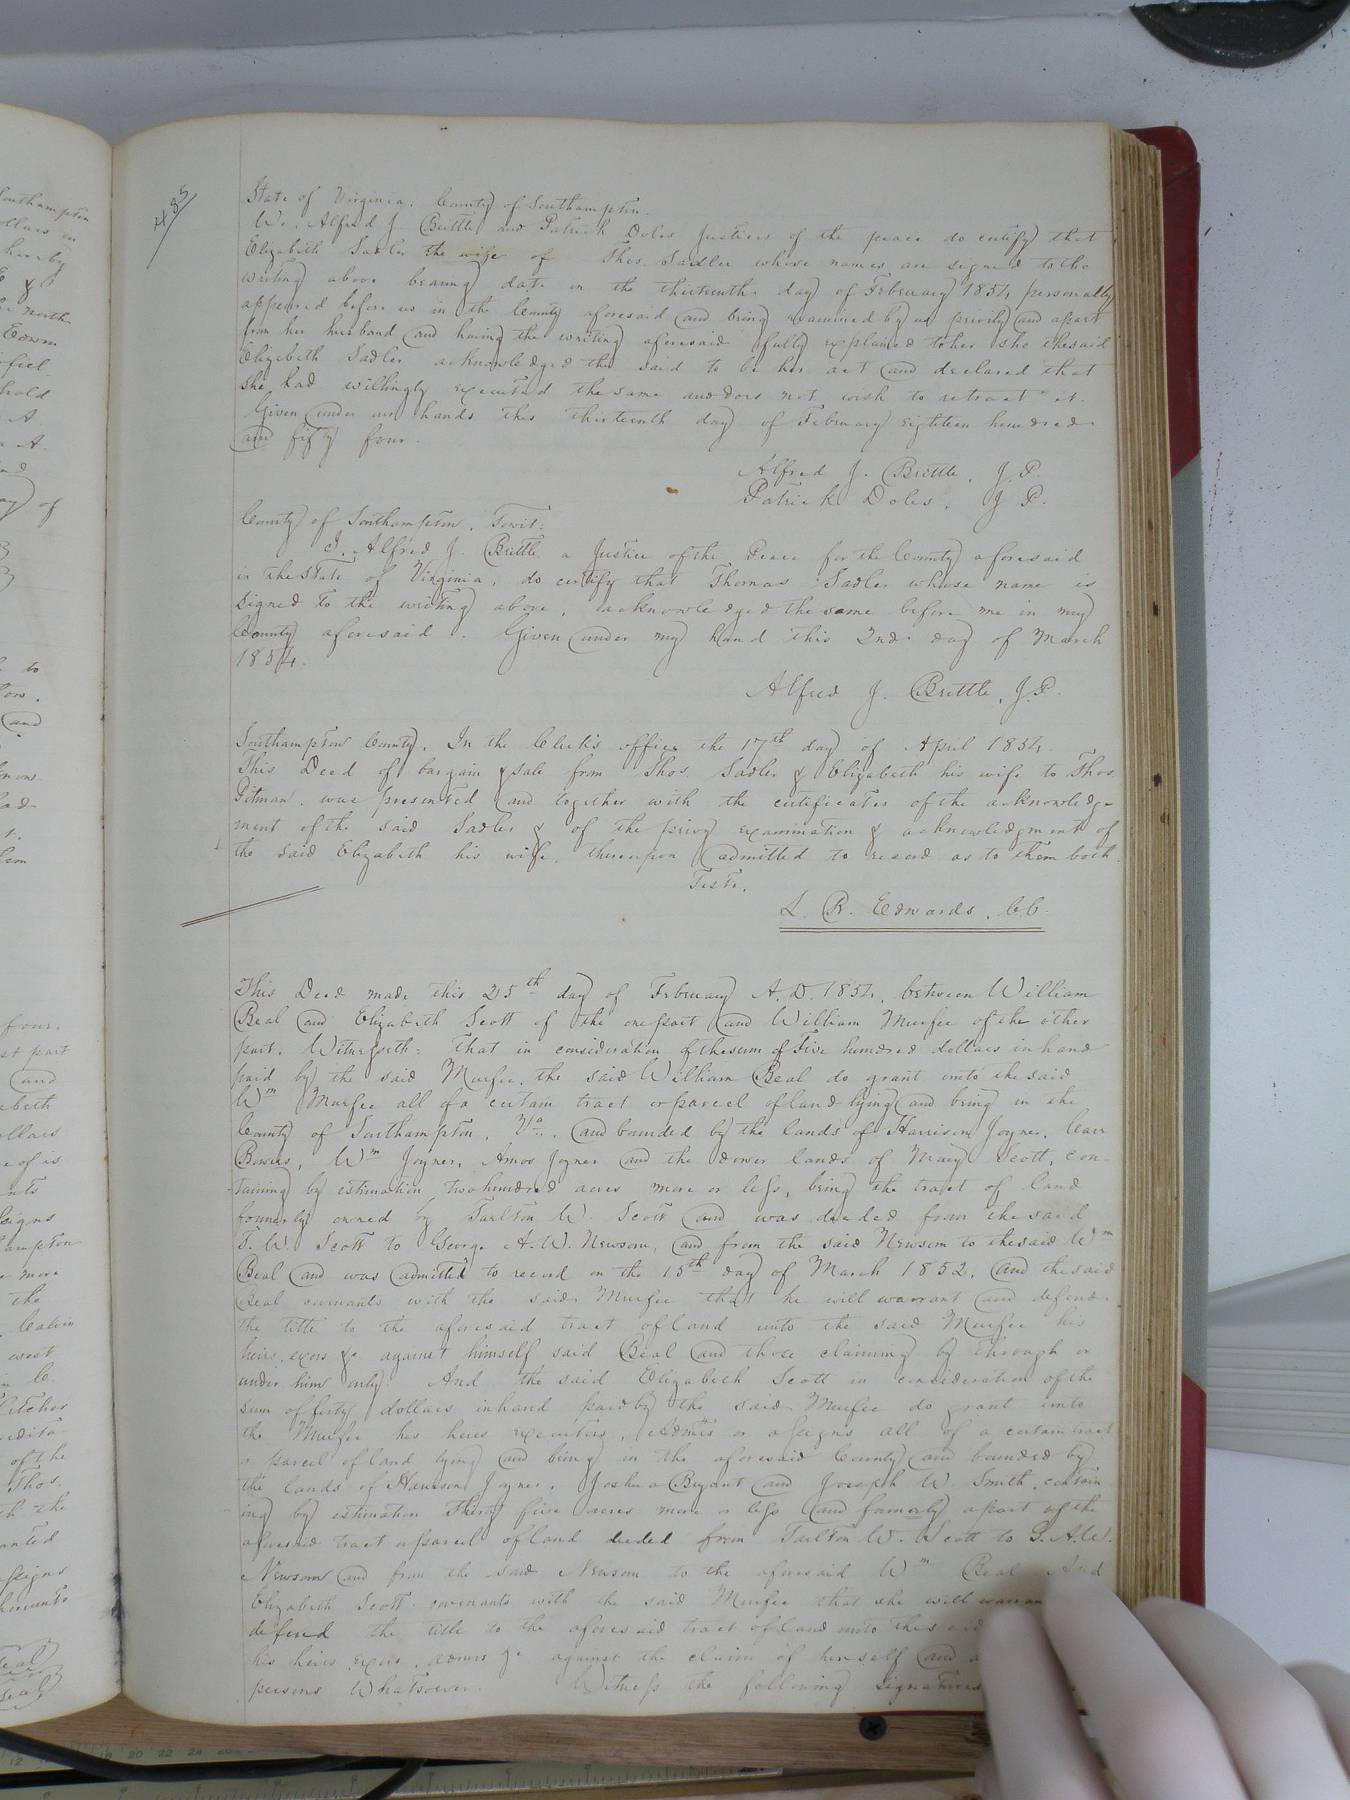 485
State of Virginia, County of Southampton.
We, Alfred J. Brittle and Patrick Doles Justices of the peace do certify that
Elizabeth Sadler the wife of Thos. Sadler whose names are signed to the
writing above bearing date on the thirteenth day of February 1854 personally
appeared before us in the County aforesaid and being examined by us privily and apart
from her husband and having the writing aforesaid fully explained to her she the said
Elizabeth Sadler acknowledged the said to be her act and declared that
she had willingly executed the same and does not wish to retract it.
Given under our hands this thirteenth day of February eighteen hundred
and fifty four.
Alfred J. Brittle, J.P.
Patrick Doles, J.P.
County of Southampton, Towit:
I, Alfred J. Brittle a Justice of the Peace for the County aforesaid
in the State of Virginia, do certify that Thomas Sadler whose name is
signed to the writing above, acknowledged the same before me in my
County aforesaid. Given under my hand this 2nd day of March
1854.
Alfred J. Brittle, J.P.
Southampton County, In the Clerk's office the 17th day of April 1854.
This Deed of bargain & sale from Thos. Sadler & Elizabeth his wife to Thos.
Pitman was presented and together with the certificates of the acknowledg-
ment of the said Sadler & of the privy examination & acknowledgment of
the said Elizabeth his wife, thereupon admitted to record as to them both.
Teste,
L. R. Edwards, CC.
This Deed made this 25th day of February A.D. 1854, between William
Beal and Elizabeth Scott of the one part and William Murfee of the other
part: Witnesseth: That in consideration of the sum of Five hundred dollars in hand
paid by the said Murfee, the said William Beal do grant unto the said
Wm Murfee all of a certain tract or parcel of land lying and being in the
County of Southampton, Va., and bounded by the lands of Harrison Joyner, Carr
Bowers, Wm Joyner, Amos Joyner and the dower lands of Mary Scott, con-
taining by estimation two hundred acres more or less, being the tract of land
formerly owned by Tarlton W. Scott and was deeded from the said
T. W. Scott to George A. W. Newsom, and from the said Newsom to the said Wm
Beal and was admitted to record on the 15th day of March 1852, and the said
Beal covenants with the said Murfee that he will warrant and defend
the title to the aforesaid tract of land unto the said Murfee his
heirs, exors &c against himself said Beal and those claiming by through or
under him only. And the said Elizabeth Scott in consideration of the
sum of forty dollars in hand paid by the said Murfee do grant unto
the Murfee his heirs executors, Admrs or assigns all of a certain tract
or parcel of land lying and being in the aforesaid County and bounded by
the lands of Harrison Joyner, Joshua Bryant and Joseph W. Smith, contain
ing by estimation Thirty five acres more or less and formerly a part of the
aforesaid tract or parcel of land deeded from Tarlton W. Scott to G. A. W.
Newsom and from the said Newsom to the aforesaid Wm Beal And
Elizabeth Scott covenants with the said Murfee that she will
defend the title to the aforesaid tract of land unto the
his heirs, exors, admrs &c against the claim of herself and
persons Whatsoever. Witness the following signatures